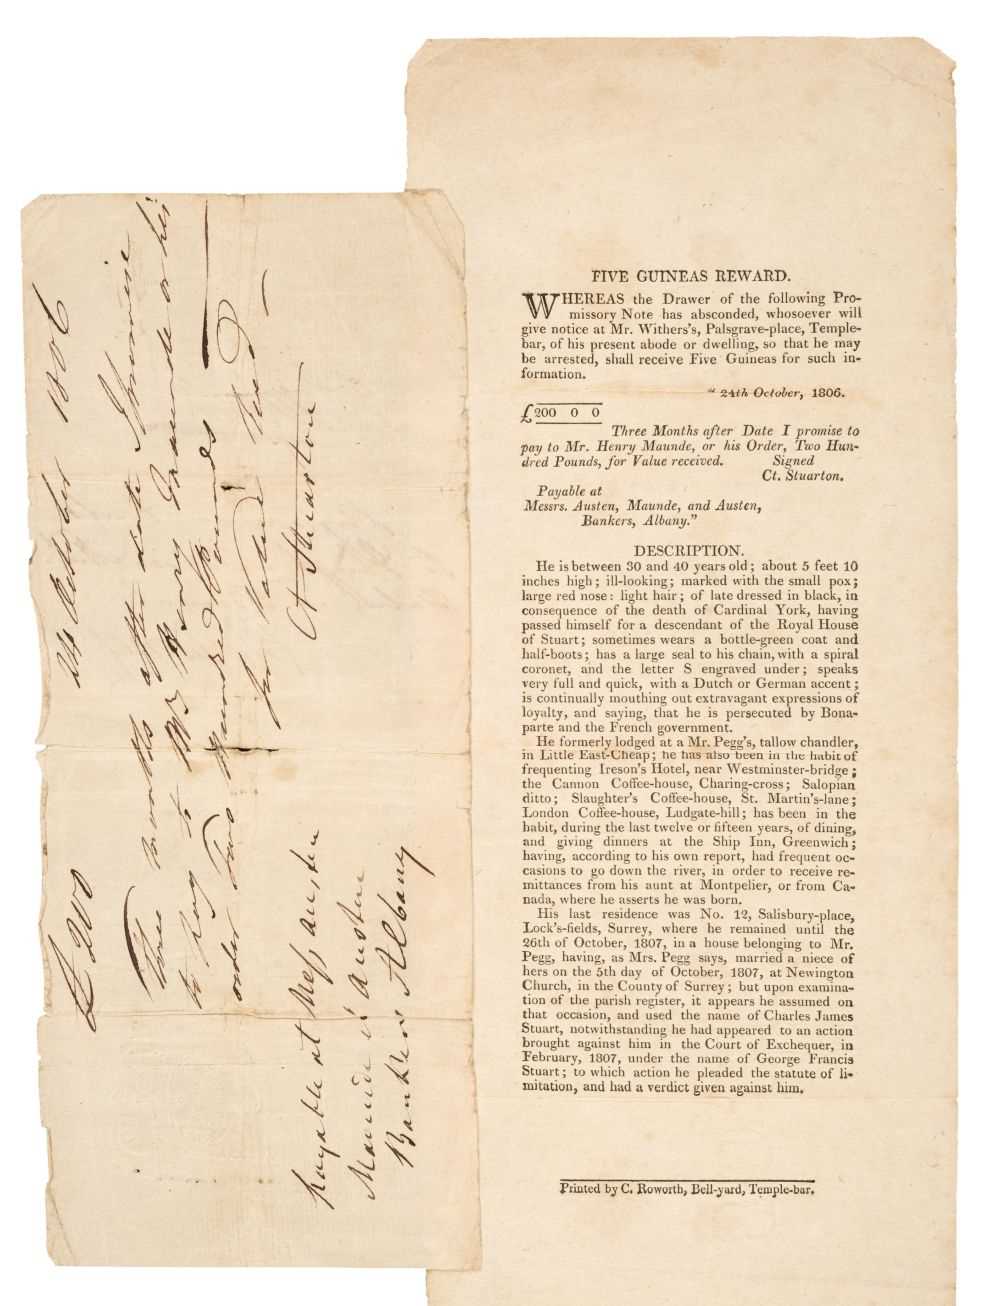 £ 200 24 October 1806
Three months after date I promise
to pay to Mr Henry Maunde or his
order Two Hundred Pounds
for Value Rec'd
Ct Stuarton
payable at Mess Austen
Maunde & Austen
Bankers Albany
FIVE GUINEAS REWARD.
WHEREAS the Drawer of the following Pro-
missory Note has absconded, whosoever will
give notice at Mr. Withers's, Palsgrave-place, Temple-
bar, of his present abode or dwelling, so that he may
be arrested, shall receive Five Guineas for such in-
formation.
" 24th October, 1806.
£200 0 0
Three Months after Date I promise to
pay to Mr. Henry Maunde, or his Order, Two Hun-
dred Pounds, for Value received. Signed
Ct. Stuarton.
Payable at
Messrs. Austen, Maunde, and Austen,
Bankers, Albany."
DESCRIPTION.
He is between 30 and 40 years old; about 5 feet 10
inches high; ill-looking; marked with the small pox;
large red nose: light hair; of late dressed in black, in
consequence of the death of Cardinal York, having
passed himself for a descendant of the Royal House
of Stuart; sometimes wears a bottle-green coat and
half-boots; has a large seal to his chain, with a spiral
coronet, and the letter S engraved under; speaks
very full and quick, with a Dutch or German accent;
is continually mouthing out extravagant expressions of
loyalty, and saying, that he is persecuted by Bona-
parte and the French government.
He formerly lodged at a Mr. Pegg's, tallow chandler,
in Little East-Cheap; he has also been in the habit of
frequenting Ireson's Hotel, near Westminster-bridge;
the Cannon Coffee-house, Charing-cross; Salopian
ditto; Slaughter's Coffee-house, St. Martin's-lane;
London Coffee-house, Ludgate-hill; has been in the
habit, during the last twelve or fifteen years, of dining,
and giving dinners at the Ship Inn, Greenwich;
having, according to his own report, had frequent oc-
casions to go down the river, in order to receive re-
mittances from his aunt at Montpelier, or from Ca-
nada, where he asserts he was born.
His last residence was No. 12, Salisbury-place,
Lock's-fields, Surrey, where he remained until the
26th of October, 1807, in a house belonging to Mr.
Pegg, having, as Mrs. Pegg says, married a niece of
hers on the 5th day of October, 1807, at Newington
Church, in the County of Surrey; but upon examina-
tion of the parish register, it appears he assumed on
that occasion, and used the name of Charles James
Stuart, notwithstanding he had appeared to an action
brought against him in the Court of Exchequer, in
February, 1807, under the name of George Francis
Stuart; to which action he pleaded the statute of li-
mitation, and had a verdict given against him.
Printed by C. Roworth, Bell-yard, Temple-bar.